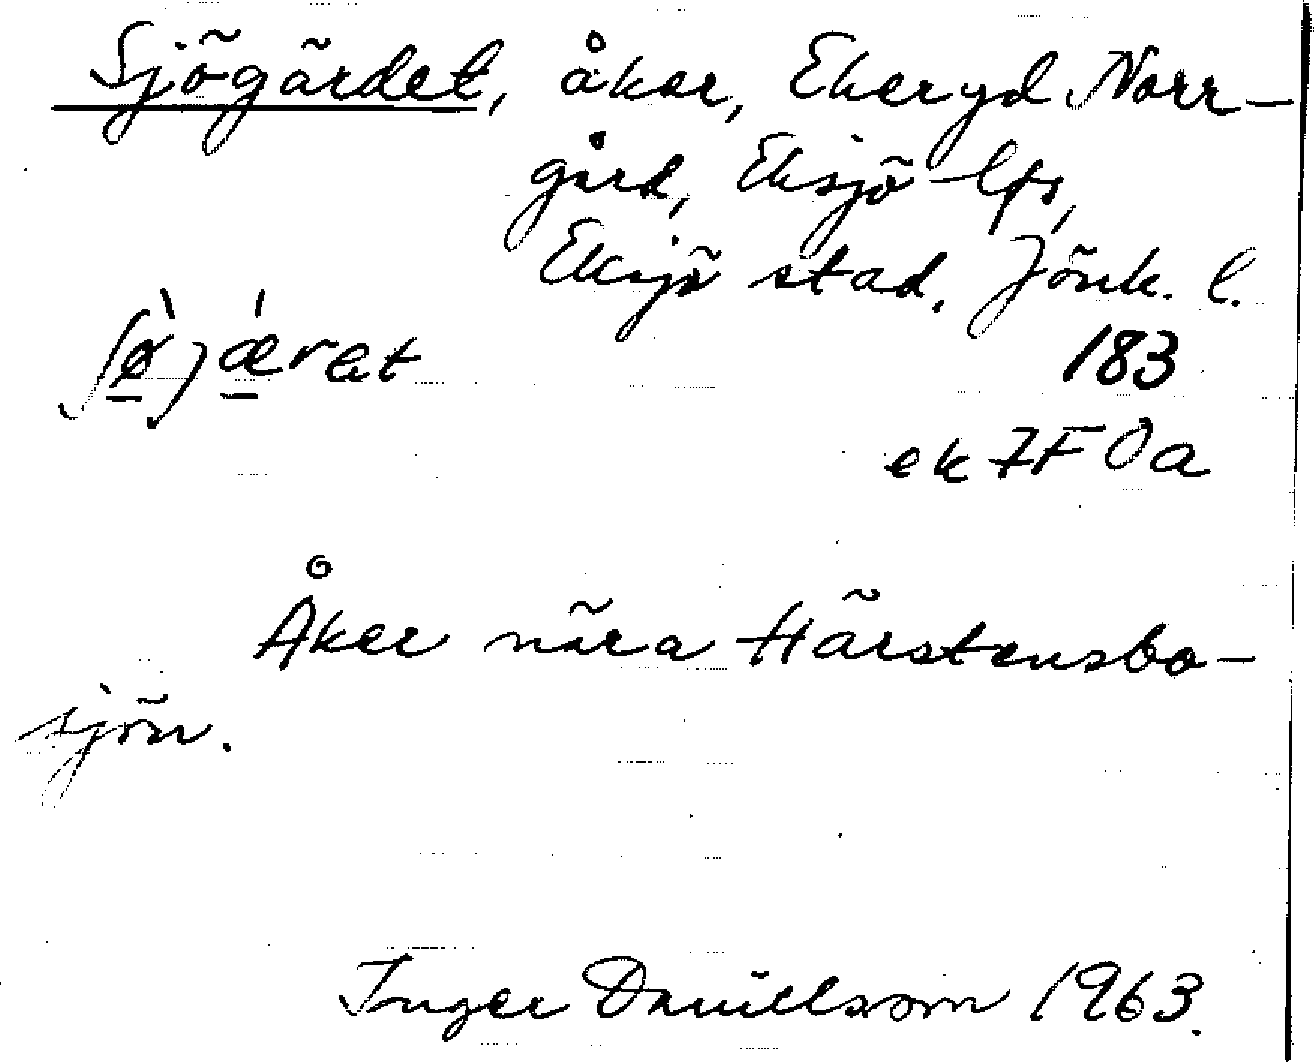 Sjögärdet, åker, Ekeryd Norr-
gård, Eksjö lfs,
Eksjö stad. Jönk. l.
ʃø̀jǽret 183
ek 7F 0a
Åker nära Härstensbo-
sjön.
Inger Daniellsson 1963.